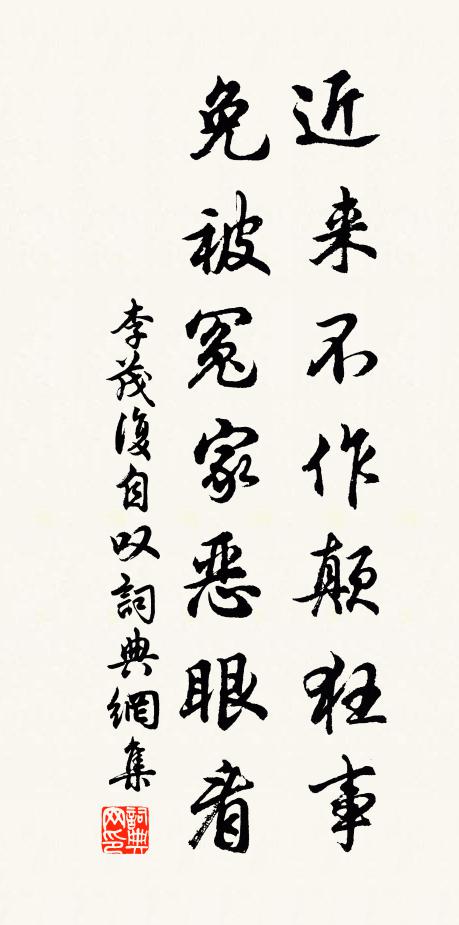 近来不作颠狂事
免被冤家恶眼看
李茂復自叹詞典網集
詞典网印